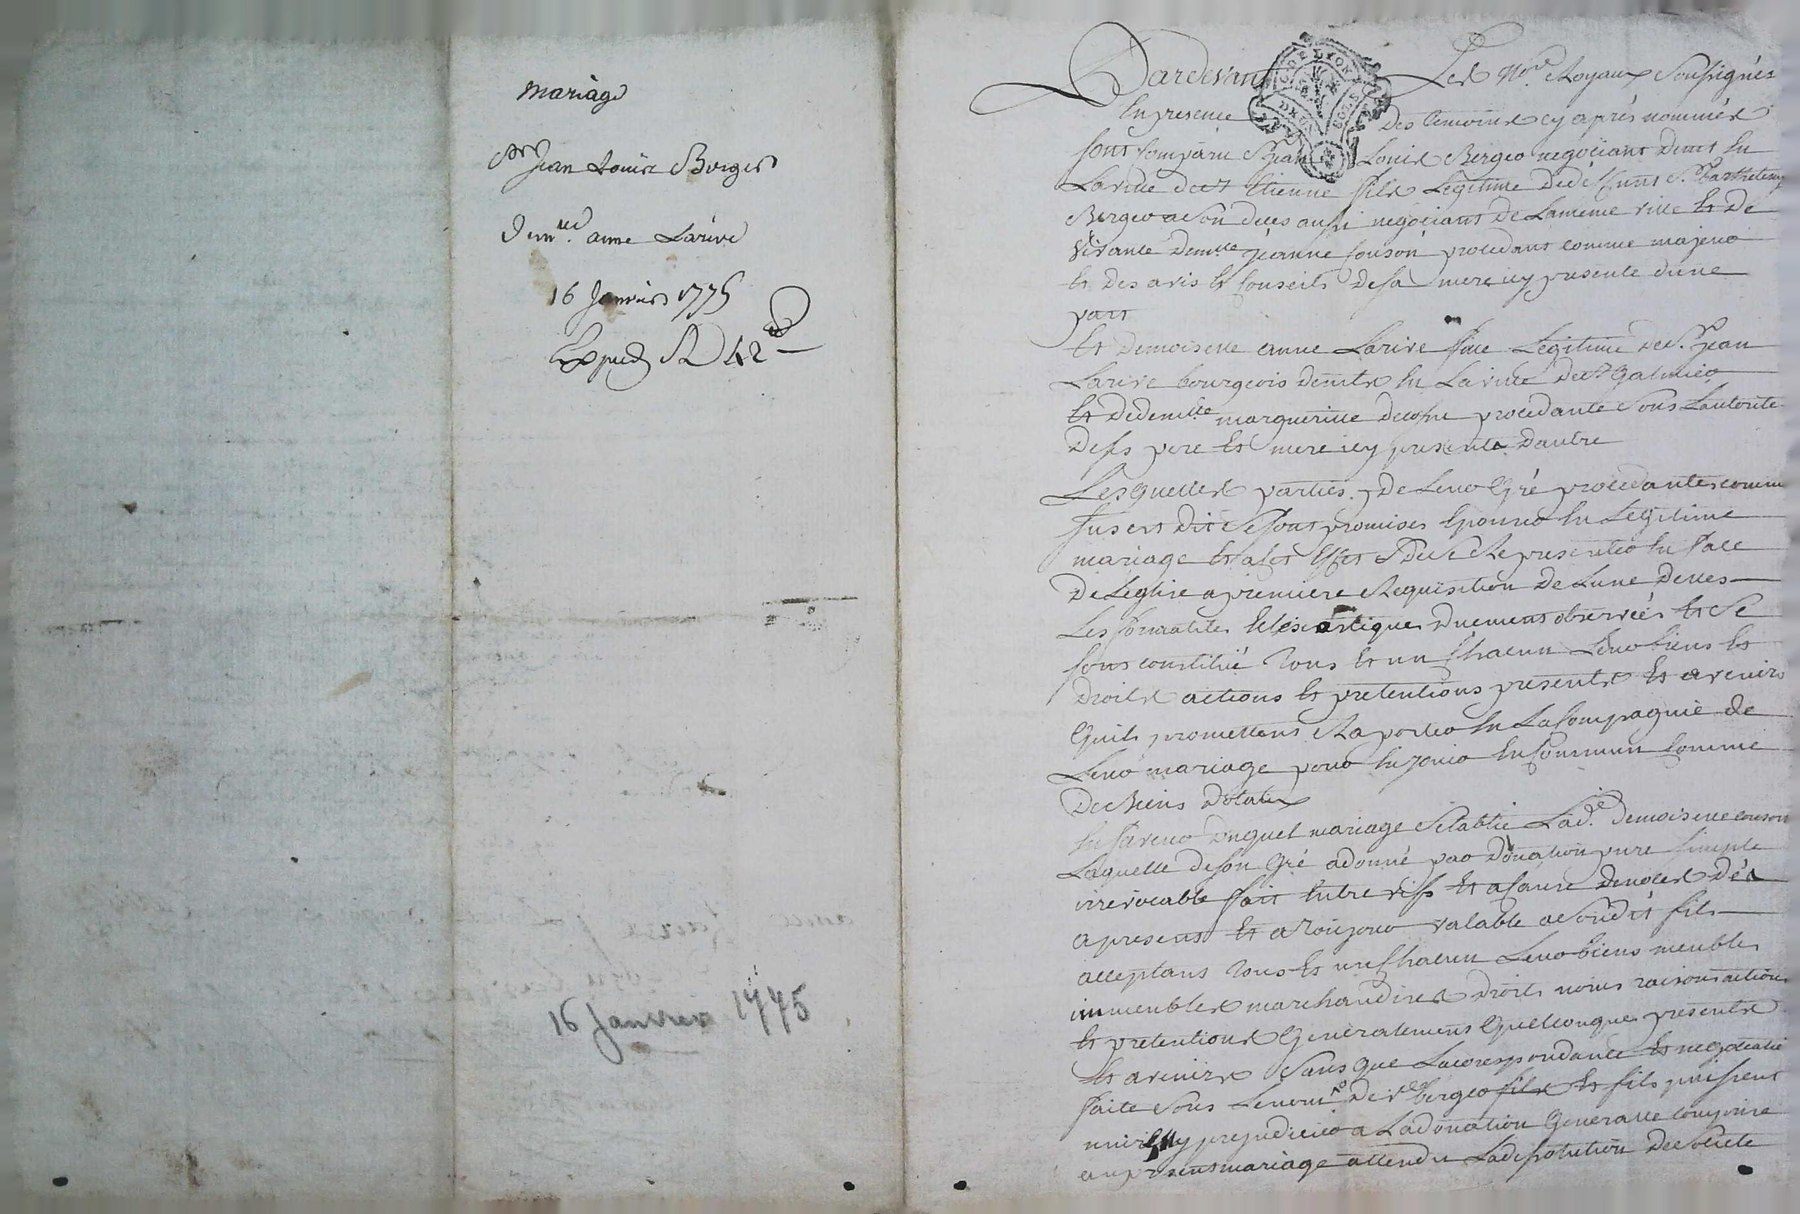 mariage
Sr Jean Louis Berger
Demlle anne Larive
16 Janvier 1775
Expedié 42
16 Janvier 1775
Pardevant Les Nores Royaux Soussignés
En presence des temoins cy aprés nommés
sont comparu Sr Jean Louis Berger negociant demt En
La ville de st Etienne fils Legitime de deffunt Sr Barthelemy
Berger a son deces aussi negociant de La meme ville Et de
vivante demlle jeanne Couson procedant comme majeur
Et des avis Et Conseils de sa mere icy presente d'une
part
Et demoiselle anne Larive fille Legitime de Sr jean
Larive bourgeois demts En La ville de st Galmier
Et de demlle margueritte procedante Sous Lautorite
de ses pere Et mere icy presents dautre
Lesquelles parties de Leur Gré procedantes comme
Sus est dit Se sont promises Epouser En Legitime
mariage Et a cet Effet de Se Representer En face
de Leglise a premiere Requisition de Lune delles
Les formalites Eclesiastiques duement observées Et Se
sont constitué tous Et un Chacun Leur biens Et
droits actions Et pretentions presents Et avenirs
quils promettent Raporter En La Compagnie de
Leur mariage pour En jouir En Commun comme
de Biens dotaux
En faveur duquel mariage S'etablie Lade demoiselle couson
Laquelle de son Gré a donné par donation pure simple
irrevocable fait Entre vifs Et a cause de noces dés
a present Et a toujour valable a Son dit fils
acceptant tous Et un Chacun Leur biens meubles
immeubles marchandises droits noms raisons actions
Et pretentions Generalement quelconque presents
Et avenirs Sans que La corespondance Et negotiation
faite sous Le nom de ve berger Et fils puissent
nuire Ny prejudicier a La donation Generalle comprise
au present mariage attendu La dissolution de Societé